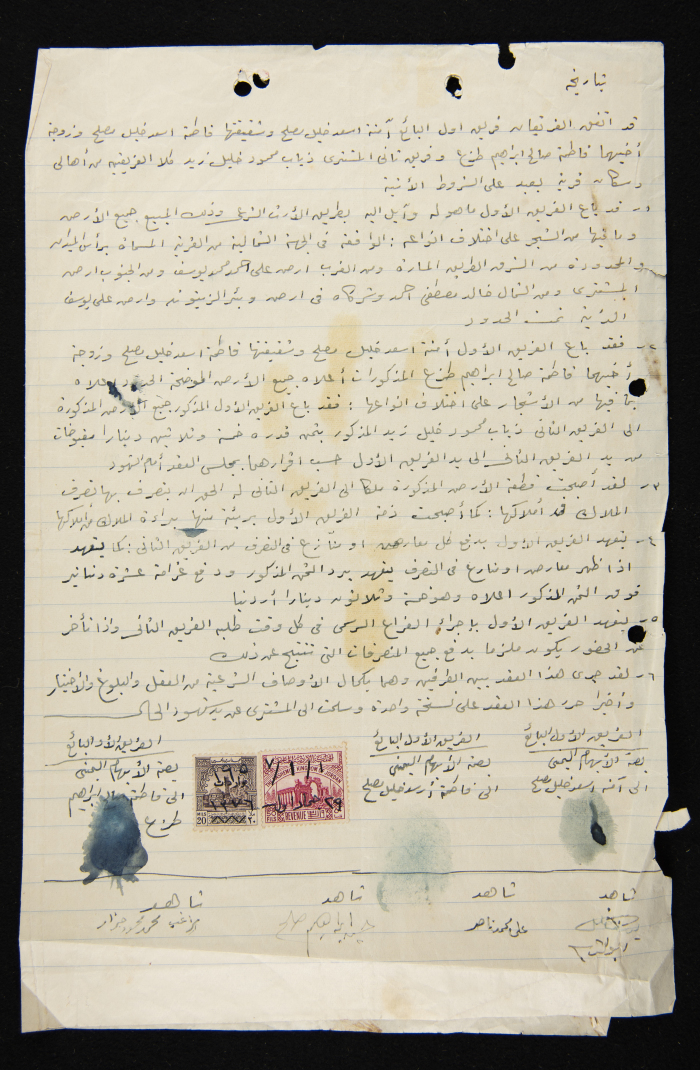 بتاريخه
قد اتفق الفريقان فريق اول البائع آمنة اسعد خليل مصلح وشقيقتها فاطمة اسعد خليل مصلح وزوجة
أخيهما فاطمة صالح ابراهيم طزع وفريق ثاني المشتري ذياب محمود خليل زيد كلا الفريقين من أهالي
وسكان قرية بعبد على الشروط الآتية
١- قد باع الفريق الأول ما هو له وآيل اليه بطريق الأرث الشرعي وذلك المبيع جميع الأرض
وما فيها من الشجر على اختلاف انواعه : الواقعة في الجهة الشمالية من القرية المسماة برأس الميدان
والمحدودة من الشرق الطريق المارة ومن الغرب ارض علي احمد يوسف ومن الجنوب ارض
المشتري ومن الشمال خالد مصطفى احمد وشركاه في ارض وبئر الزيتونه وارض علي يوسف
تمت الحدود
٢- فقد باع الفريق الأول آمنة اسعد خليل مصلح وشقيقتها فاطمة اسعد خليل مصلح وزوجة
أخيهما فاطمة صالح ابراهيم طزع المذكورات أعلاه جميع الأرض الموضحة الحدود اعلاه
بما فيها من الأشجار على اختلاف انواعها : فقد باع الفريق الأول المذكور جميع الأرض المذكورة
الى الفريق الثاني ذياب محمود خليل زيد المذكور بثمن قدره خمسة وثلاثين دينارا مقبوضات
من يد الفريق الثاني الى يد الفريق الأول حسب اقرارهما بمجلس العقد أمام الشهود
٣- لقد أصبحت قطعة الأرض المذكورة ملكا الى الفريق الثاني له الحق ان يتصرف بها تصرف
الملاك في أملاكها : كما أصبحت ذمة الفريق الأول بريئة منها براءة الملاك عن أملاكها
٤- يتعهد الفريق الأول بدفع كل معارض او منازع في التصرف من الفريق الثاني : كما يتعهد
اذا ظهر معارض او منازع في التصرف يتعهد برد الثمن المذكور ودفع غرامة عشرة دنانير
فوق الثمن المذكور اعلاه وهو خمسة وثلاثون دينارا أردنيا
٥- يتعهد الفريق الأول بإجراء الفراغ الرسمي في كل وقت طلبه الفريق الثاني واذا تأخر
عن الحضور يكون ملزما بدفع جميع المتصرفات التي تنتج عن ذلك
٦- لقد جرى هذا العقد بين الطرفين وهما بكمال الأوصاف الشرعية من العقل والبلوغ والأختيار
وأخيرا حرر هذا العقد على نسخة واحدة وسلمت الى المشتري عن يد شهود الحال
الفريق الأول البائع
بصمة الأبهام اليمنى
الى آمنة اسعد خليل مصلح
الفريق الأول البائع
بصمة الأبهام اليمنى
الى فاطمة أسعد خليل مصلح
الفريق الأول البائع
بصمة الأبهام اليمنى
الى فاطمة صالح ابراهيم
طزع
REVENUE
FILS
MILS 20
٢٠
شاهد
شاهد
علي محمد ناصر
شاهد
شاهد